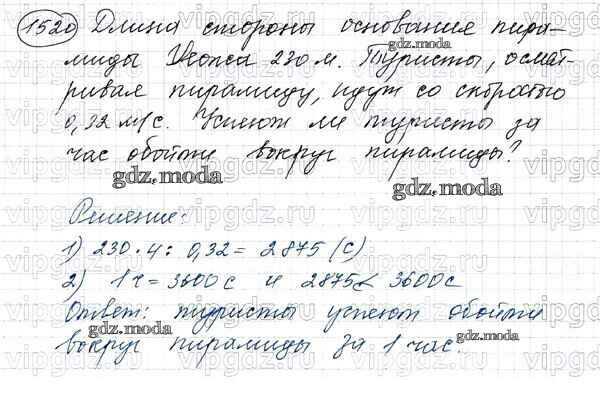 1520 Длина стороны основания пира-
миды Хеопса 230 м. Туристы, осмат-
ривая пирамиду, идут со скоростью
0,32 м/с. Успеют ли туристы за
час обойти вокруг пирамиды?
Решение:
1) 230 · 4 : 0,32 = 2875 (с)
2) 1 ч = 3600 с и 2875 < 3600 с
Ответ: туристы успеют обойти
вокруг пирамиды за 1 час.
gdz.moda
gdz.moda
gdz.moda
gdz.moda
gdz.moda
vipgdz.ru